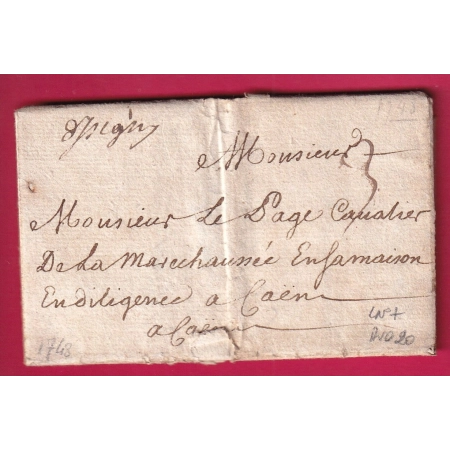 d'Isigny
1748
Monsieur
3
Monsieur Le Page Cavalier
De La Marechaussée En Samaison
En diligence a Caën
a Caën
1748